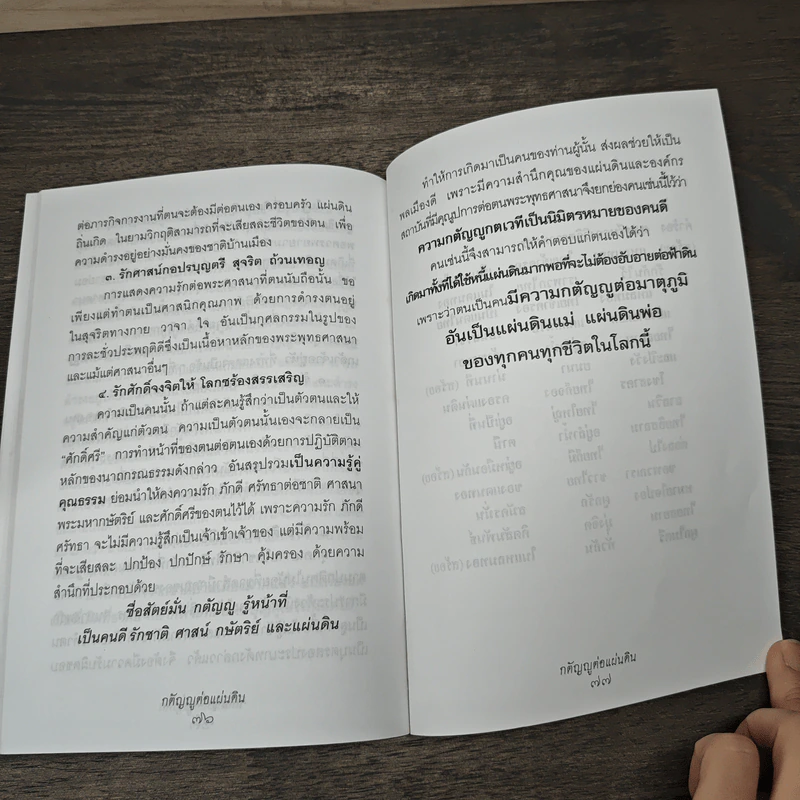 ต่อภารกิจการงานที่ตนจะต้องมีต่อตนเอง ครอบครัว แผ่นดิน
ถิ่นเกิด ในยามวิกฤติสามารถที่จะเสียสละชีวิตของตน เพื่อ
ความดำรงอยู่อย่างมั่นคงของชาติบ้านเมือง
๓. รักศาสน์กอปรบุญตรี สุจริต ถ้วนเทอญ
การแสดงความรักต่อพระศาสนาที่ตนนับถือนั้น ขอ
เพียงแต่ทำตนเป็นศาสนิกคุณภาพ ด้วยการดำรงตนอยู่
ในสุจริตทางกาย วาจา ใจ อันเป็นกุศลกรรมในรูปของ
การละชั่วประพฤติดีซึ่งเป็นเนื้อหาหลักของพระพุทธศาสนา
และแม้แต่ศาสนาอื่นๆ
๔. รักศักดิ์จงจิตให้ โลกซร้องสรรเสริญ
ความเป็นคนนั้น ถ้าแต่ละคนรู้สึกว่าเป็นตัวตนและให้
ความสำคัญแก่ตัวตน ความเป็นตัวตนนั้นเองจะกลายเป็น
“ศักดิ์ศรี” การทำหน้าที่ของตนต่อตนเองด้วยการปฏิบัติตาม
หลักของนาถกรณธรรมดังกล่าว อันสรุปรวมเป็นความรู้คู่
คุณธรรม ย่อมนำให้คงความรัก ภักดี ศรัทธาต่อชาติ ศาสนา
พระมหากษัตริย์ และศักดิ์ศรีของตนไว้ได้ เพราะความรัก ภักดี
ศรัทธา จะไม่มีความรู้สึกเป็นเจ้าเข้าเจ้าของ แต่มีความพร้อม
ที่จะเสียสละ ปกป้อง ปกปักษ์ รักษา คุ้มครอง ด้วยความ
สำนึกที่ประกอบด้วย
ซื่อสัตย์มั่น กตัญญู รู้หน้าที่
เป็นคนดี รักชาติ ศาสน์ กษัตริย์ และแผ่นดิน
กตัญญูต่อแผ่นดิน
๗๖
ทำให้การเกิดมาเป็นคนของท่านผู้นั้น ส่งผลช่วยให้เป็น
พลเมืองดี เพราะมีความสำนึกคุณของแผ่นดินและองค์กร
สถาบันที่มีคุณูปการต่อตนพระพุทธศาสนาจึงยกย่องคนเช่นนี้ไว้ว่า
ความกตัญญูกตเวทีเป็นนิมิตรหมายของคนดี
คนเช่นนี้จึงสามารถให้คำตอบแก่ตนเองได้ว่า
เกิดมาทั้งที่ได้ใช้หนี้แผ่นดินมากพอที่จะไม่ต้องอับอายต่อฟ้าดิน
เพราะว่าตนเป็นคนมีความกตัญญูต่อมาตุภูมิ
อันเป็นแผ่นดินแม่ แผ่นดินพ่อ
ของทุกคนทุกชีวิตในโลกนี้
กตัญญูต่อแผ่นดิน
๗๗